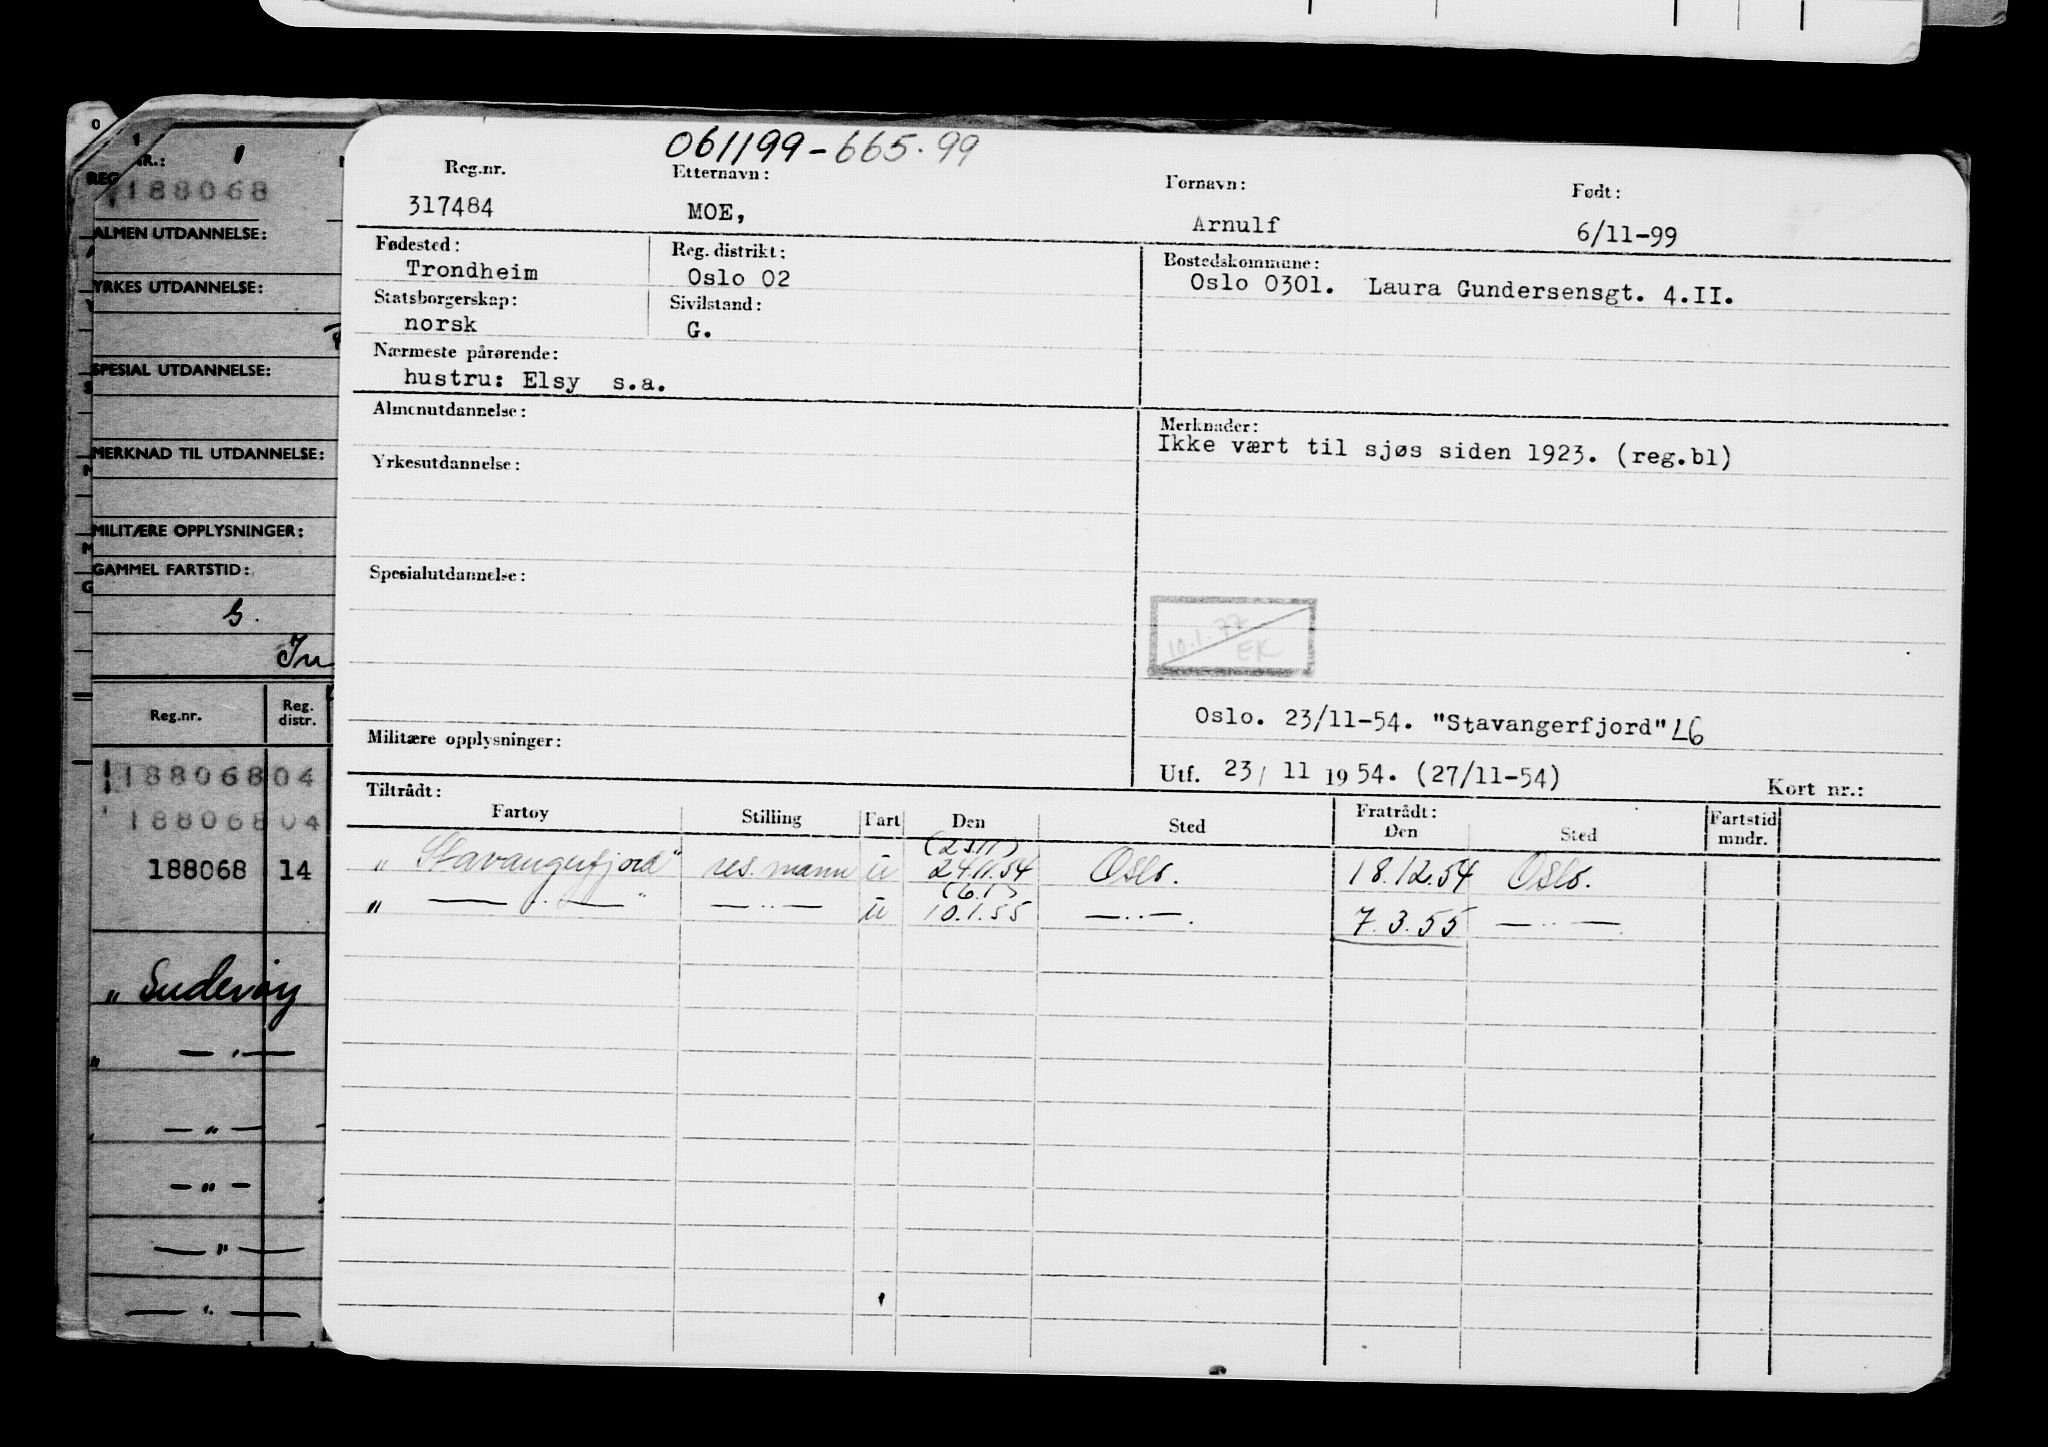 061199-665.99
Reg.nr. Etternavn: Fornavn: Født:
317484 MOE, Arnulf 6/11-99
Fødested: Reg. distrikt: Bostedskommune:
Trondheim Oslo 02 Oslo 0301. Laura Gundersensgt. 4.II.
Statsborgerskap: Sivilstand:
norsk G.
Nærmeste pårørende:
hustru: Elsy s.a.
Almenutdannelse: Merknader:
Ikke vært til sjøs siden 1923. (reg.bl)
Yrkesutdannelse:
Spesialutdannelse:
10.1.77
EK
Oslo. 23/11-54. "Stavangerfjord" L6
Militære opplysninger:
Utf. 23/ 11 1954. (27/11-54) Kort nr.:
Tiltrådt: Fratrådt: Fartstid
Fartøy Stilling Fart Den Sted Den Sted mndr.
(23.11)
„ Stavangerfjord" res. mann u 24.11.54 Oslo. 18.12.54 Oslo.
(6.1)
„ — . — " — .. — u 10.1.55 — .. —. 7.3.55 — .. —
0
1
REG NR.: 1
188068
ALMEN UTDANNELSE:
YRKES UTDANNELSE:
SPESIAL UTDANNELSE:
MERKNAD TIL UTDANNELSE:
MILITÆRE OPPLYSNINGER:
GAMMEL FARTSTID:
Reg.nr. Reg. distr.
188068 04
188068 04
188068 14
„ Suderøy
„ — " —
— " —
— " —
— " —
— " —